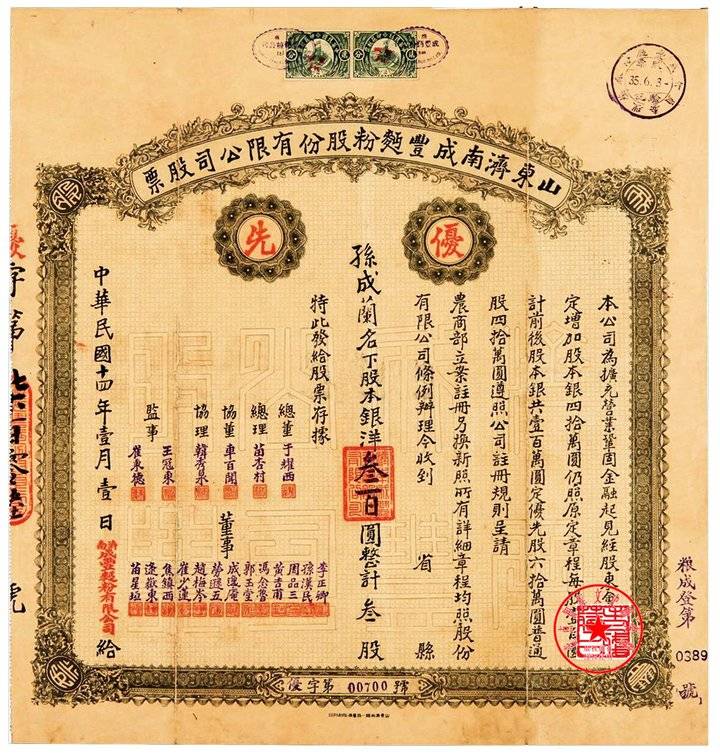 35.6.3
山東濟南成豐麵粉股份有限公司股票
優先
本公司為擴充營業鞏固金融起見經股東會
定增加股本銀四拾萬圓仍照原定章程每股
計前後股本銀共壹百萬圓定優先股六拾萬圓普通
股四拾萬圓遵照公司註冊規則呈請
農商部立案註冊另換新照所有詳細章程均照股份
有限公司條例辦理今收到 省 縣
孫成蘭名下股本銀洋叁百圓整計叁股
特此發給股票存據
總董 于耀西
總理 苗杏村
協董 車百聞
協理 韓秀泉
監事 王冠東
崔東德
董事
李正卿
孫漢民
周品三
黃吉甫
馮念魯
郭玉堂
成運庵
勞遜五
趙梅岑
崔少蓮
焦鎮西
逯徵東
苗星垣
中華民國十四年壹月壹日
濟南成豐麵粉有限公司 給
優字第 00700 號
優字第
號
粮成登第
0389
號